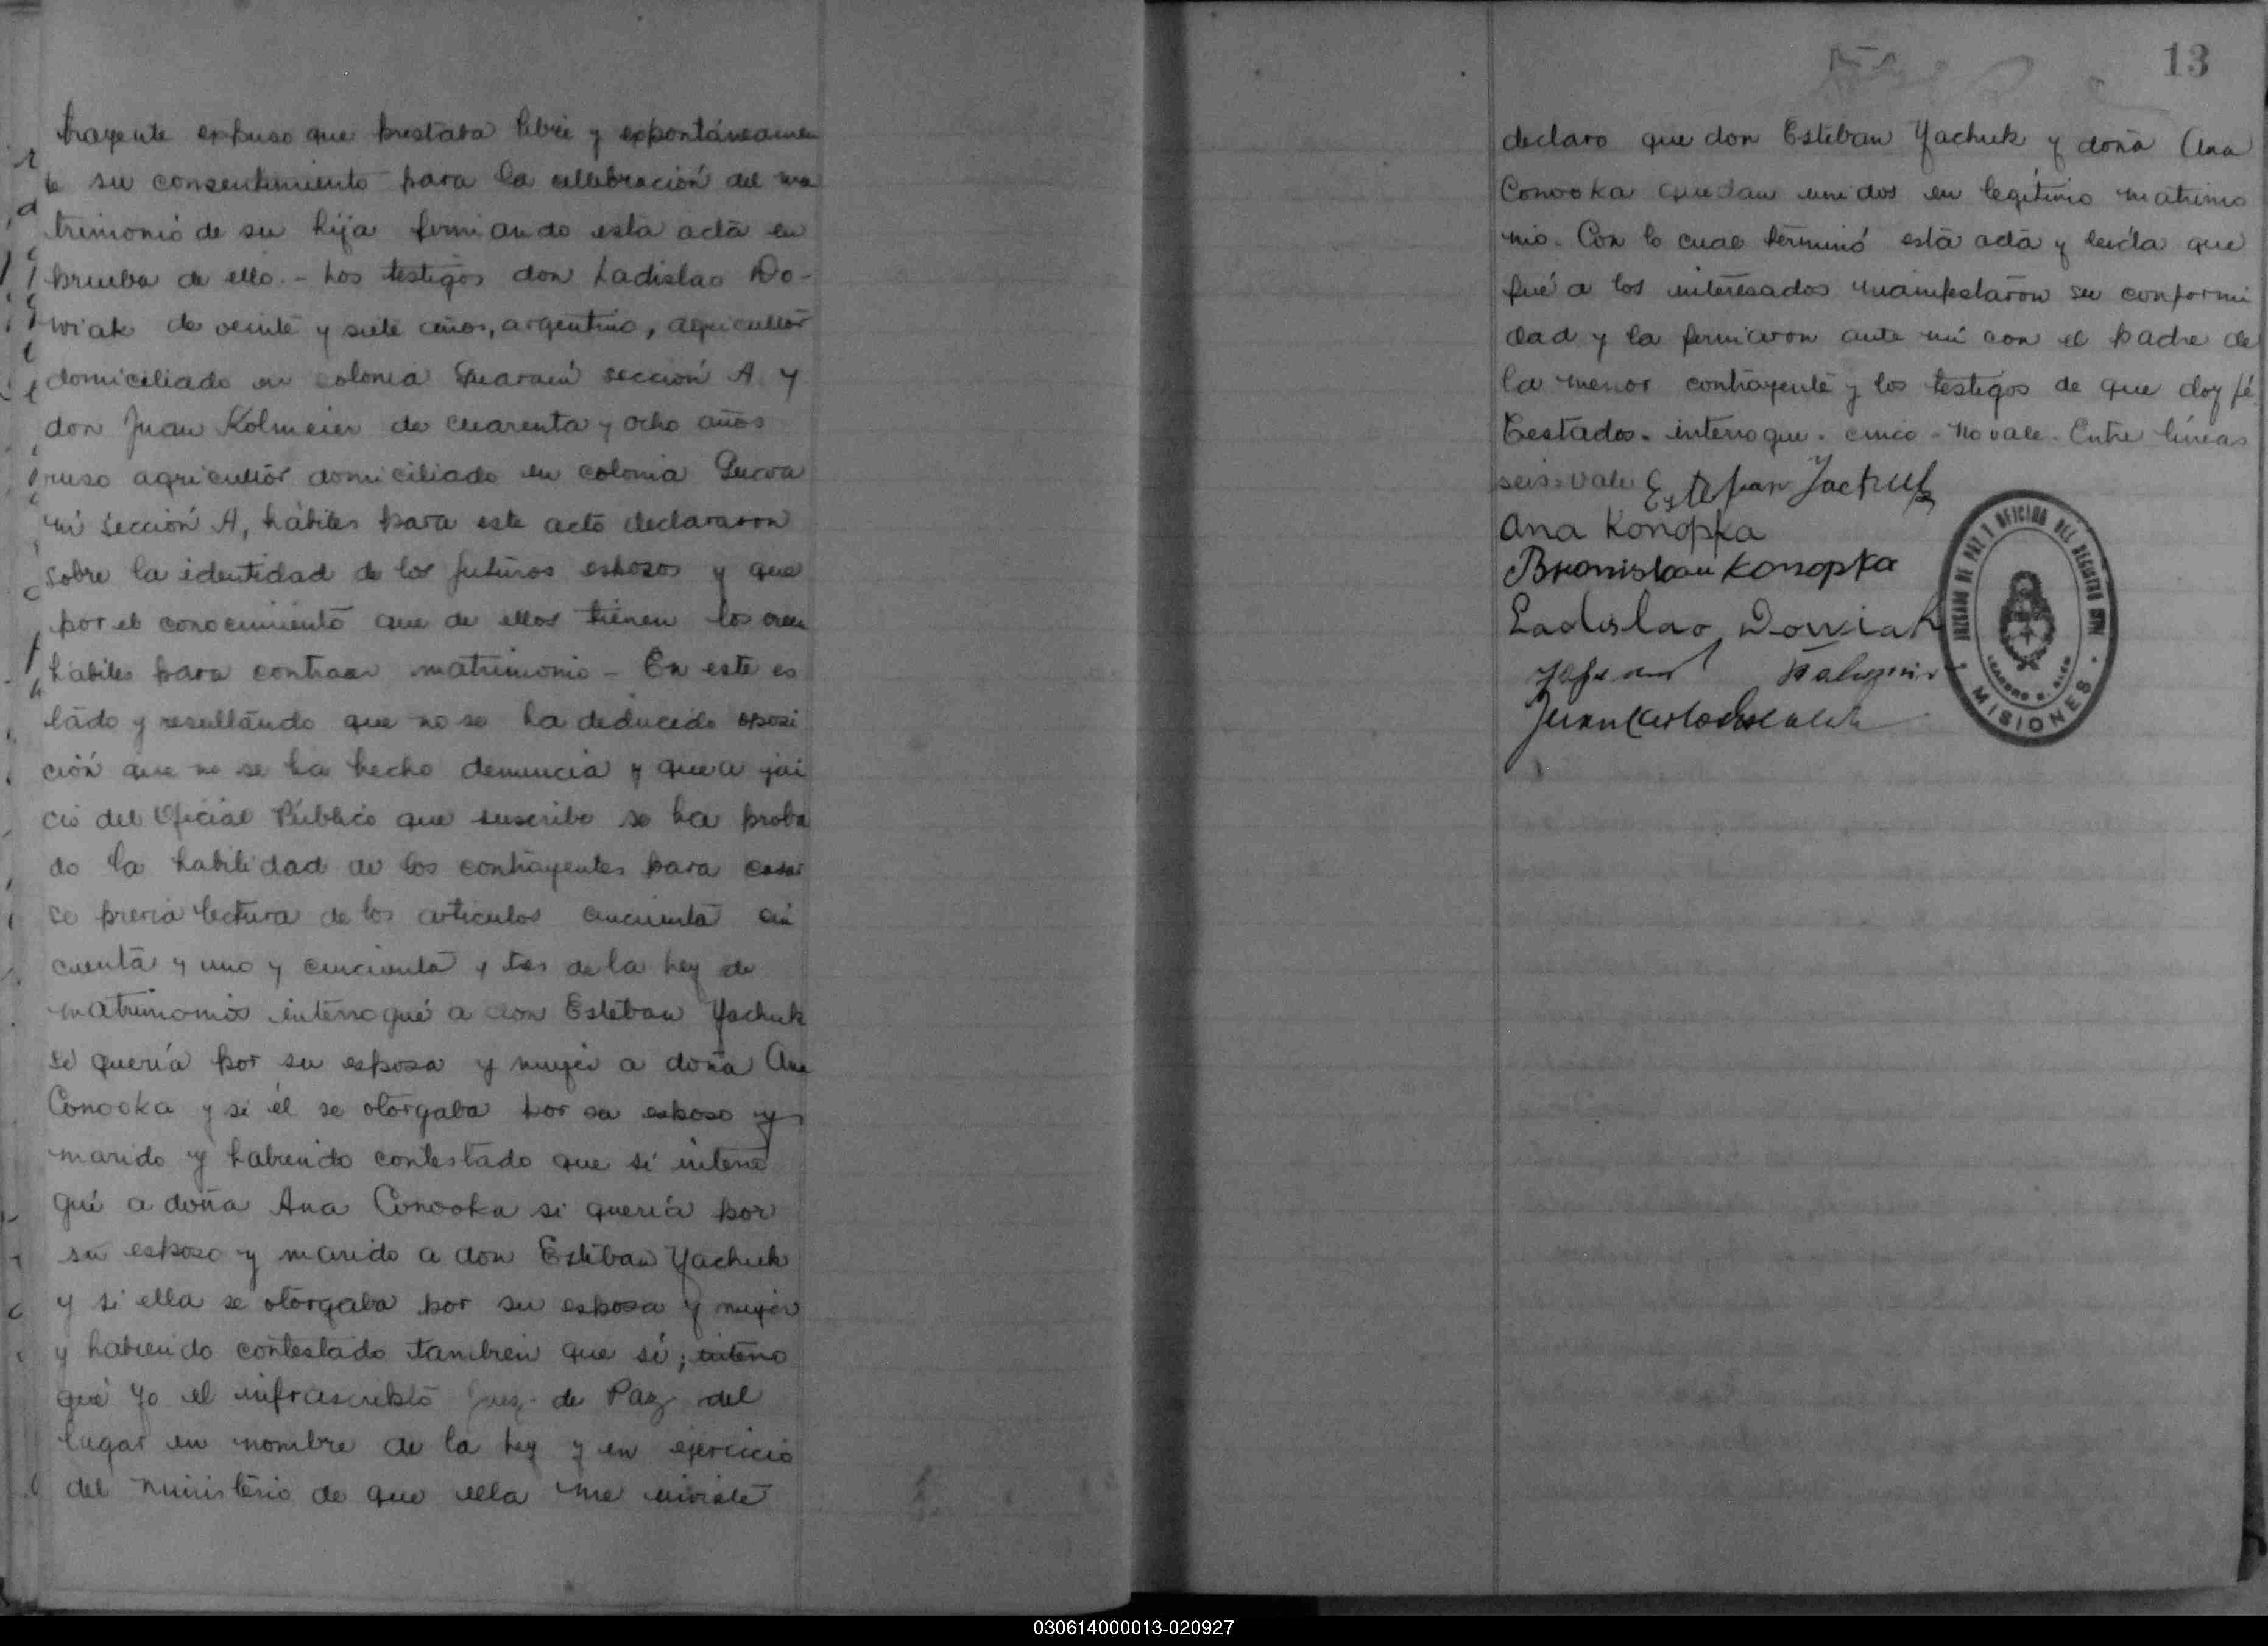 trayente expuso que prestaba libre y expontáneamen
te su consentimiento para la cellebración del ma
trimonio de su hija firmando esta acta en
prueba de ello. - Los testigos don Ladislao Do-
wiak de veinte y siete años, argentino, agricultor
domiciliado en colonia Guaraní sección A y
don Juan Kolmeier de cuarenta y ocho años
ruso agricultor domiciliado en colonia Guara
ní sección A, hábiles para este acto declararon
sobre la identidad de los futuros esposos y que
por el conocimiento que de ellos tienen los creen
hábiles para contraer matrimonio - En este es
tado y resultando que no se ha deducido oposi
ción que no se ha hecho denuncia y que a jui
cio del Oficial Público que suscribe se ha proba
do la habilidad de los contrayentes para casar
se previa lectura de los artículos cincuenta cin
cuenta y uno y cincuenta y tres de la Ley de
matrimonio interrogué a don Esteban Yachuk
si quería por su esposa y mujer a doña Ana
Conooka y si él se otorgaba por su esposo y
marido y habiendo contestado que sí interro
gué a doña Ana Conooka si quería por
su esposo y marido a don Esteban Yachuk
y si ella se otorgaba por su esposa y mujer
y habiendo contestado tambien que sí; interro
gué yo el infrascripto Juez de Paz del
lugar en nombre de la Ley y en ejercicio
del ministerio de que ella me inviste
13
declaro que don Esteban Yachuk y doña Ana
Conooka quedan unidos en legítimo matrimo
nio. Con lo cual terminó esta acta y leída que
fué a los interesados manifestaron su conformi
dad y la firmaron ante mí con el padre de
la menor contrayente y los testigos de que doy fé.
Testados. interrogué. cinco - No vale. Entre líneas
seis = vale Estefan Jachuk
Ana Konopka
Bronislau Konopka
Ladislao Dowiak
Juan Carlos
JUZGADO DE PAZ Y OFICINA DEL REGISTRO CIVIL
LEANDRO N. ALEM
MISIONES
030614000013-020927